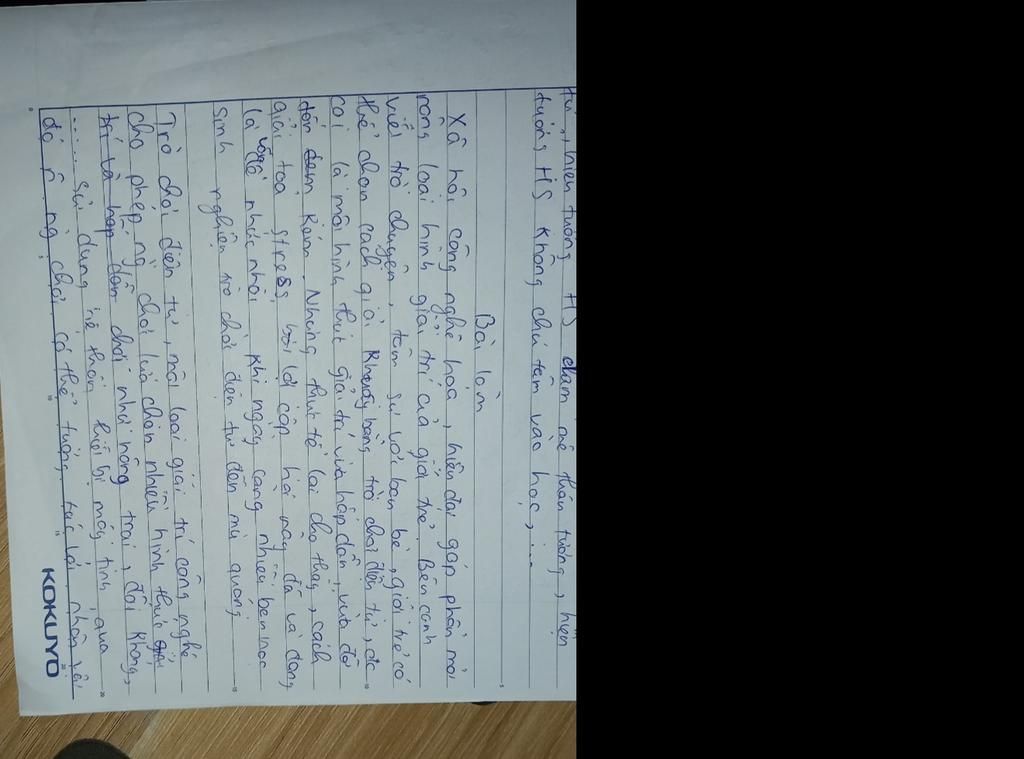 tử, hiện tượng HS đam mê thần tượng, hiện
tượng HS không chú tâm vào học,...
Bài làm
Xã hội công nghệ hoá, hiện đại góp phần mở
rộng loại hình giải trí của giới trẻ. Bên cạnh
viết trò chuyện, tâm sự với bạn bè, giới trẻ có
thể chọn cách giải khuây bằng trò chơi điện tử, đc
coi là môi hình thức giải trí vừa hấp dẫn, vừa đỡ
tốn kém. Nhưng thực tế lại cho thấy, cách
giải toả stress bởi lời cập hại này đã và đang
là vấn đề nhức nhối khi ngày càng nhiều bạn học
sinh nghiện trò chơi điện tử đến mù quáng
Trò chơi điện tử, môi loại giải trí công nghệ
cho phép ng chơi lựa chọn nhiều hình thức giải
trí và hấp dẫn chơi như nông trại, đôi kháng,
...... sử dụng hệ thống thiết bị máy tính, qua
đó ng chơi có thể tương tác với nhân vật
KOKUYO